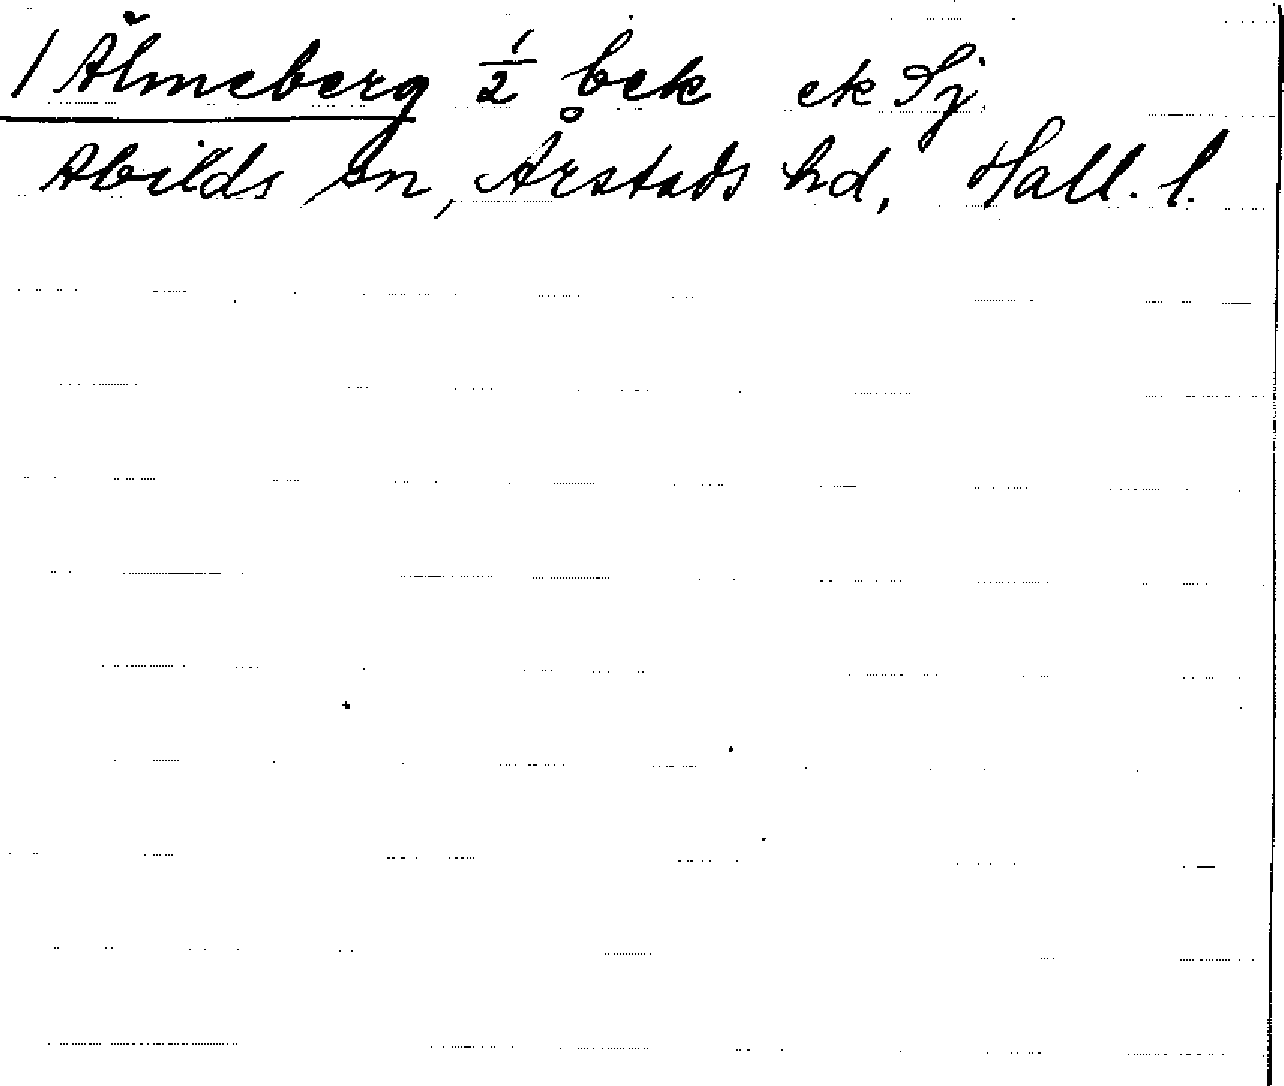 / Älmeberg 1/2 bek ek Sj
Abilds sn, Årstads hd, Hall. l.